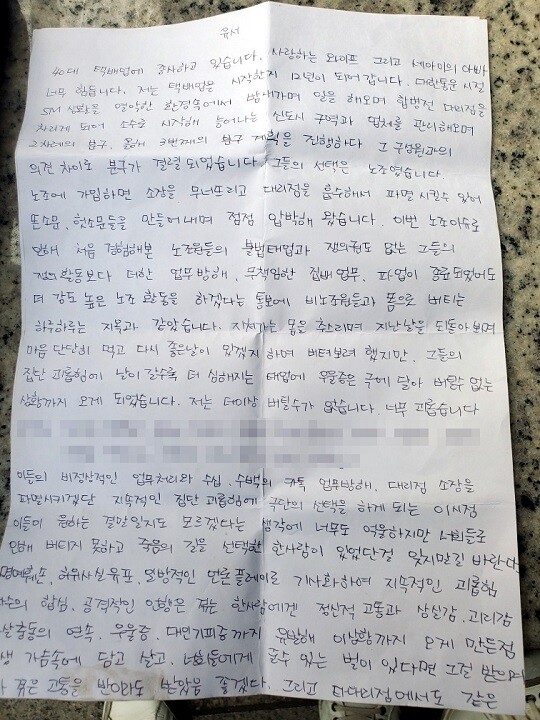 유서
40대 택배업에 종사하고 있습니다. 사랑하는 와이프 그리고 세아이의 아빠
너무 힘듭니다. 저는 택배업을 시작한지 12년이 되어갑니다. 대한통운 시절
SM 생활을 열악한 환경속에서 밤새가며 일을 해오며 합병전 대리점을
차리게 되어 소수로 시작해 늘어나는 신도시 구역과 업처를 관리해오며
2차례의 분구. 올해 3번째의 분구 계획을 진행하다 그 구성원과의
의견 차이로 분구가 결렬 되었습니다 그들의 선택은 노조였습니다.
노조에 가입하면 소장을 무너뜨리고 대리점을 흡수해서 파멸 시킬수 있어
뜬소문, 헛소문들을 만들어내며 점점 압박해 왔습니다. 이번 노조이슈로
인해 처음 경험해본 노조원들의 불법태업과 쟁의권도 없는 그들의
쟁의활동보다 더한 업무방해, 무책임한 집배업무. 파업이 종료되었어도
더 강도 높은 노조 활동을 하겠다는 통보에 비노조원들과 몸으로 버티는
하루하루는 지옥과 같았습니다. 지쳐가는 몸을 추스리며 지난날을 되돌아보며
마음 단단히 먹고 다시 좋은날이 있겠지 하며 버텨보려 했지만. 그들의
집단 괴롭힘에 날이 갈수록 더 심해지는 태업에 우울증은 극에 달아 버틸수 없는
상황까지 오게 되었습니다. 저는 더이상 버틸수가 없습니다. 너무 괴롭습니다
이들의 비정상적인 업무처리와 수십. 수백의 카톡 업무방해. 대리점 소장을
파멸시키겠단 지속적인 집단 괴롭힘에 극단의 선택을 하게 되는 이시점
이들이 원하는 결말일지도 모르겠다는 생각에 너무도 억울하지만 너희들로
인해 버티지 못하고 죽음의 길을 선택한 한사람이 있었단걸 잊지말길 바란다
명예훼손, 허위사실유포, 일방적인 언론플레이로 기사화하여 지속적인 괴롭힘
합심. 공격적인 언행은 저는 한사람에겐 정신적 고통과 상실감. 괴리감
연속. 우울증. 대인기피증까지 유발해 이상황까지 오게 만든점
가슴속에 담고 살고. 너희들에게 줄수 있는 벌이 있다면 그걸 받으며
고통을 반이라도 받았음 좋겠다. 그리고 타대리점에서도 같은